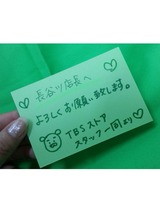 長谷川店長へ
よろしくお願い致します。
TBSストア
スタッフ一同より